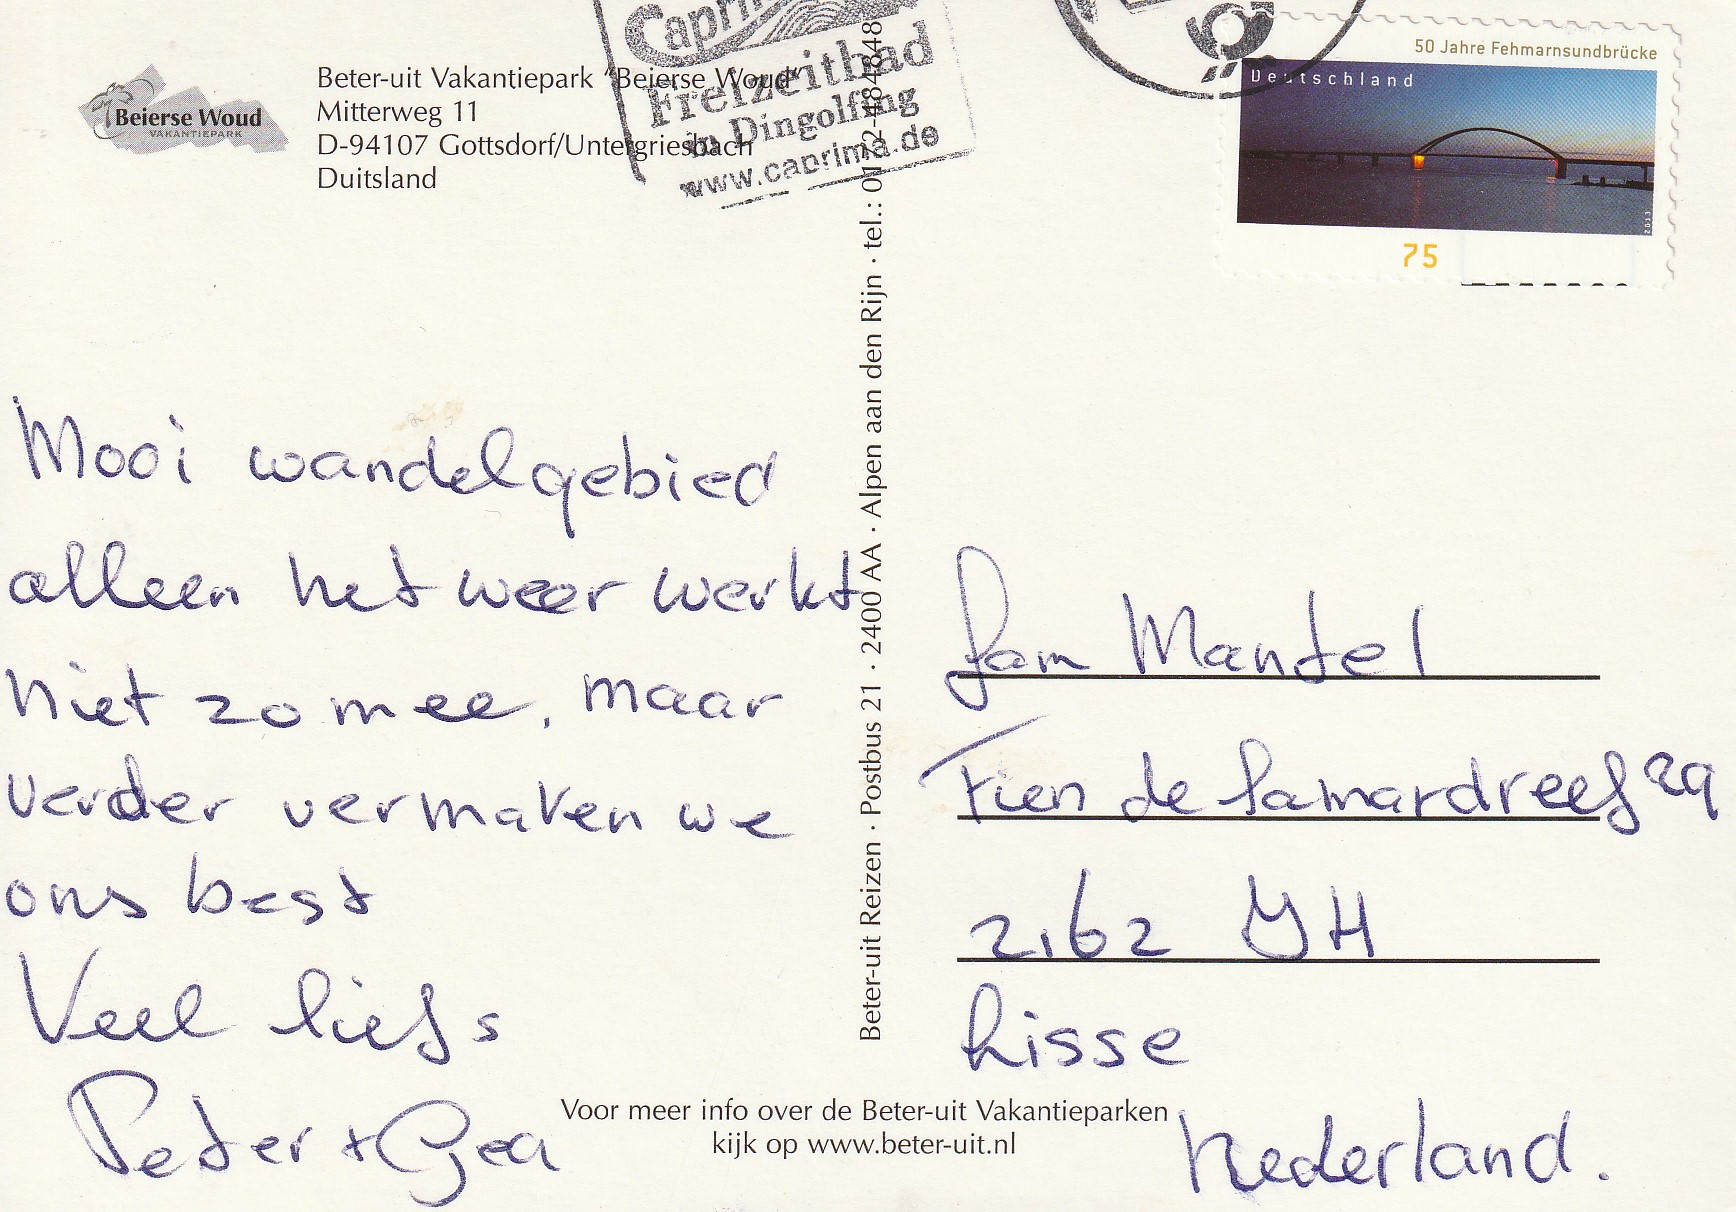 Beierse Woud
VAKANTIEPARK
Beter-uit Vakantiepark "Beierse Woud"
Mitterweg 11
D-94107 Gottsdorf/Untergriesbach
Duitsland
Freizeitbad
in Dingolfing
www.caprima.de
50 Jahre Fehmarnsundbrücke
Deutschland
2013
75
Mooi wandelgebied
alleen het weer werkt
niet zo mee, maar
verder vermaken we
ons best
Veel liefs
Peter + Gea
Beter-uit Reizen · Postbus 21 · 2400 AA · Alpen aan den Rijn · tel.: 0172-484848
fam Mantel
Fien de Lamardreef 29
2162 YH
Lisse
Nederland.
Voor meer info over de Beter-uit Vakantieparken
kijk op www.beter-uit.nl